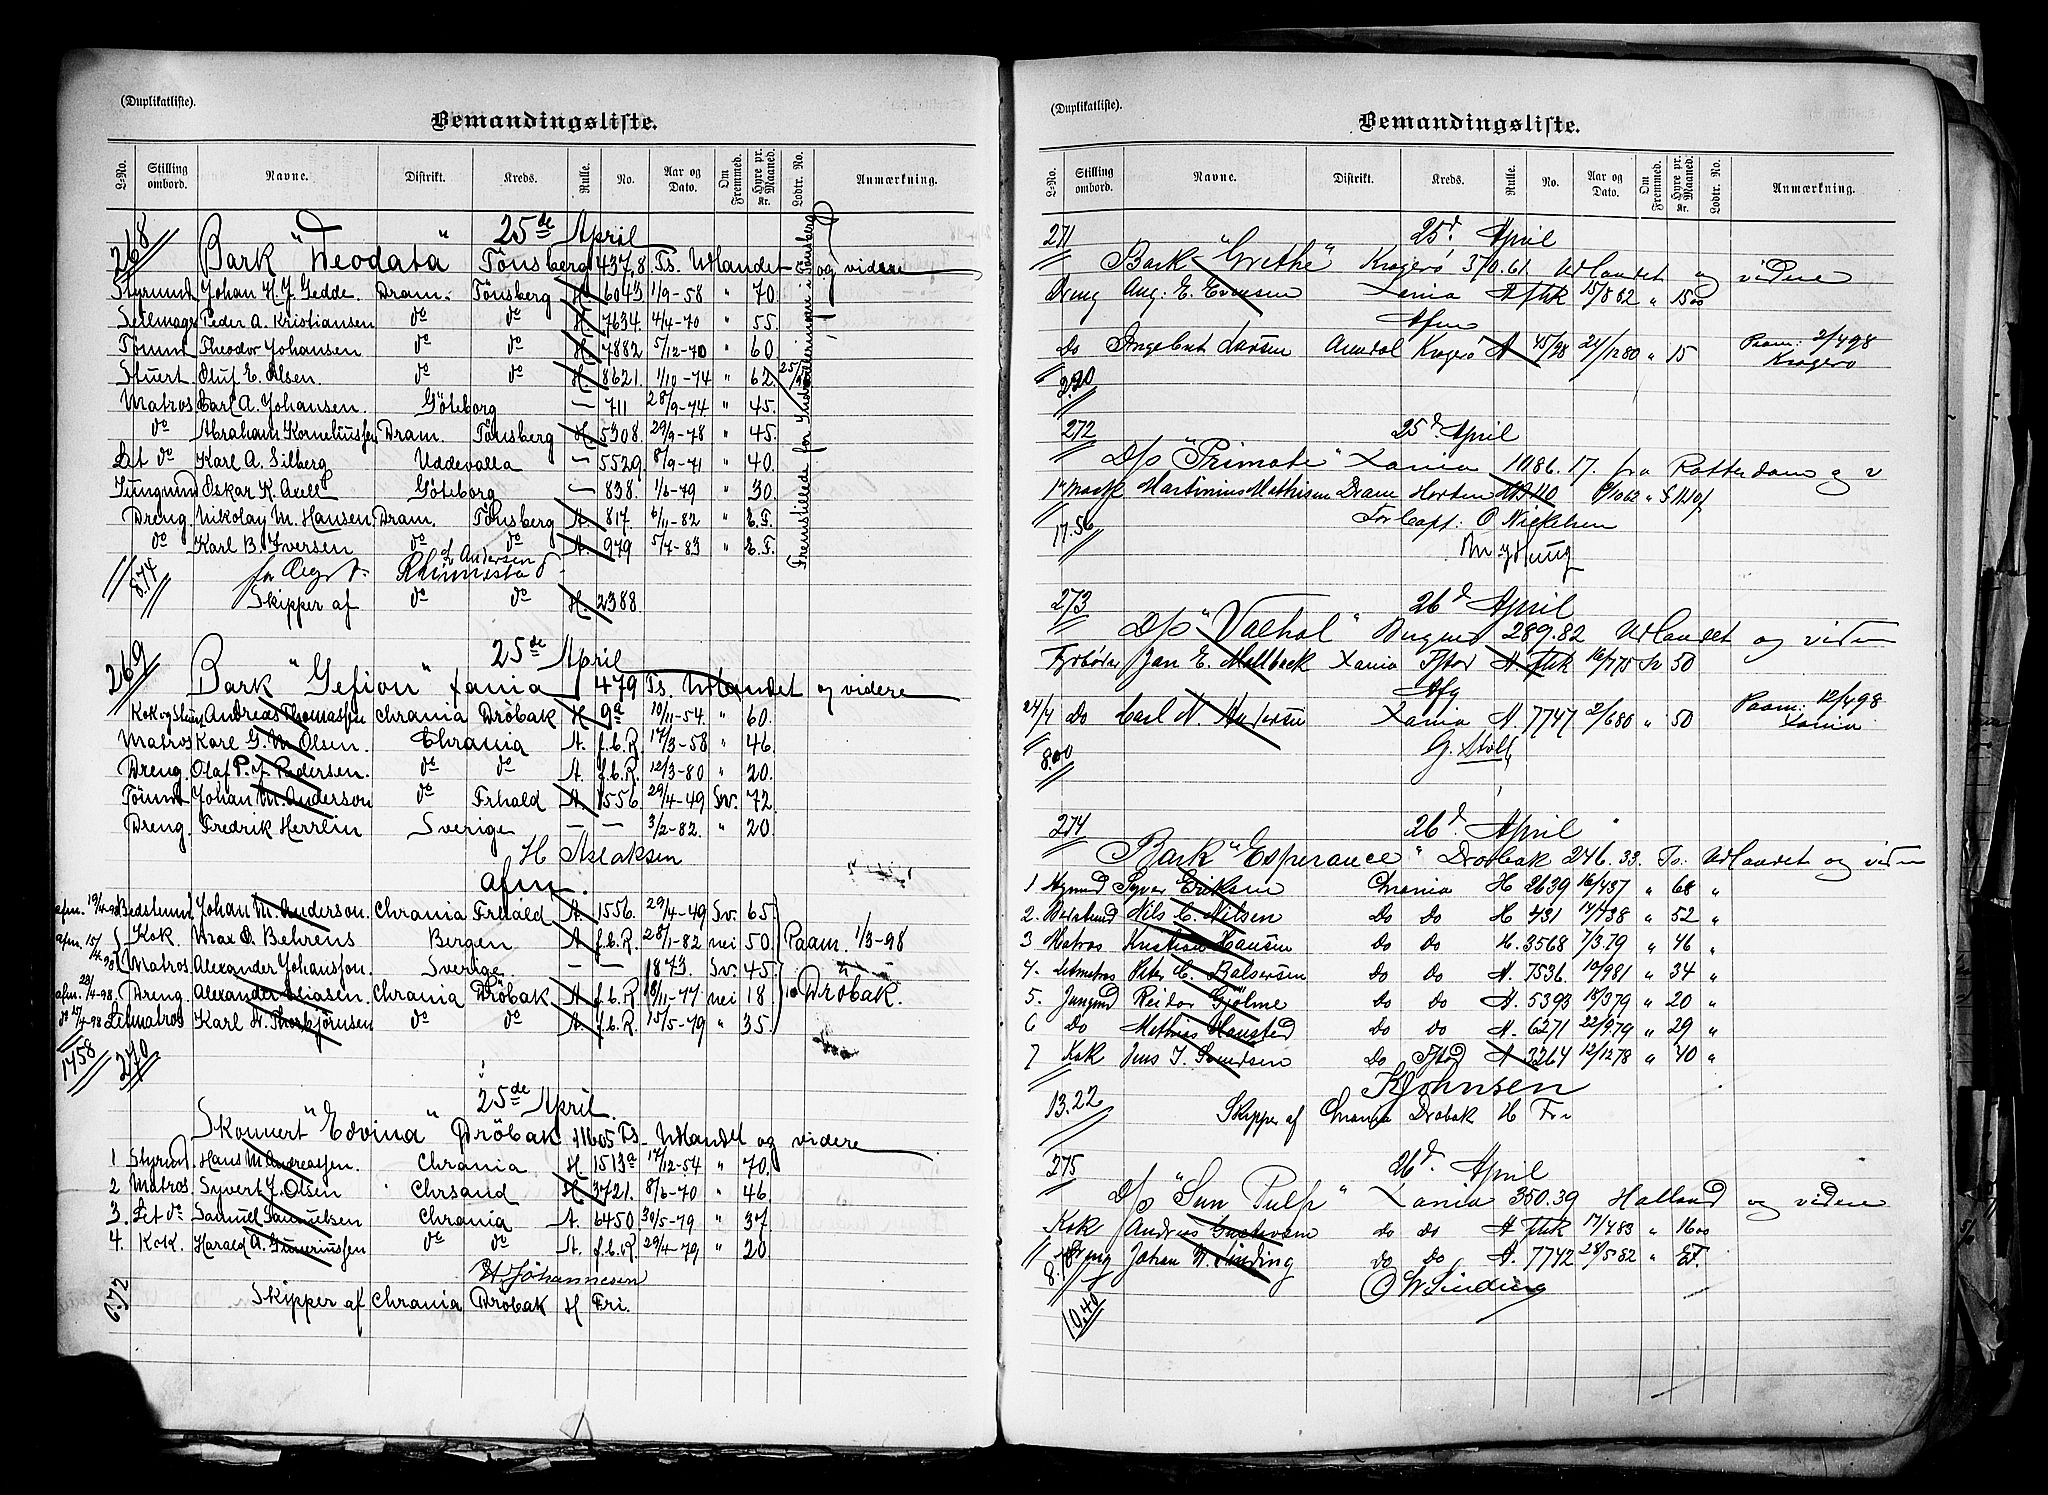 (Duplikatliste).
Bemandingsliste.
L-No. Stilling ombord. Navne. Distrikt. Kreds. Rulle. No. Aar og Dato. Om Fremmed. Hyre pr. Maaned. Kr. Lodtr. No. Anmærkning.
25de April
268 Bark "Deodata" Tönsberg 437,8 Ts. Utlandet og videre
Styrmd Johan H. J. Gedde. Dram. Tönsberg H. 6043 1/9-58 " 70.
Seilmager Peder A. Kristiansen do do H. 7634. 4/4-70 " 55.
Tömmt Theodor Johansen do do H. 7882 5/12-70 " 60
Stuert. Oluf E. Olsen. do do H. 8621. 1/10-74 " 62
Matros Carl A. Johansen. Göteborg — 711 28/9-74 " 45.
do Abraham Korneliussen Dram. Tönsberg H. 5308. 29/9-78 " 45.
Let do Karl A. Silberg Uddevalla — 5529. 8/9-71 " 40.
Jungmd Oskar K. Axell Göteborg — 838. 1/6-79 " 30.
Dreng. Nikolay M. Hansen, Dram. Tönsberg A. 817. 6/11-82 " E.F.
do Karl B. Iversen do do A. 979 5/7-83 " E.F.
874 L Andersen
Skipper af do do H. 2388
25de April
269 Bark "Gefion" Xania 479 Ts. Utlandet og videre
Kok og Stuert Andreas Thomassen Chrania Dröbak H 9a 10/11-54. " 60.
Matros Karl G. M. Olsen. Chrania A. f.b.R. 17/3-58 " 46
Dreng. Olaf P. J. Pedersen. do do A. f.b.R. 12/3-80 " 20.
Tömmt Johan M. Anderson do Frhald A. 1556. 29/4-49 Sv. 72
Dreng. Fredrik Herrlin Sverige — — 3/2-82. " 20
H Aslaksen
afm.
afm. 19/4-98 Bedstmd Johan M. Anderson. Chrania Frhald A. 1556. 29/4-49 Sv. 65
afm. 15/4-98 Kok. Max O. Behrens Bergen A. f.b.R. 28/1-82 nei 50. Paam. 1/3-98
Matros. Alexander Johansson. Sverige. — — 1873. Sv. 45.
afm. 23/4-98. Dreng. Alexander Eliasen. Chrania Dröbak A. f.b.R. 8/11-77 nei 18 Dröbak.
do 27/4-98 Letmatros Karl A. Thorbjörnsen do do A. f.b.R. 15/5-79 " 35.
1458 270
25de April.
Skonnert "Edvina" Dröbak 116.05 Ts- Utlandet og videre
1 Styrmd. Hans M. Andreassen. Chrania H. 1513a 17/12-54 " 70.
2 Matros. Syvert J. Olsen Chrsand H. 3721. 8/6-70 " 46
3. Let do Samuel Samuelsen Chrania A. 6450. 30/5-79 " 37
4. Kok. Harald A. Gunerinssen do do A. f.b.R. 29/4-79 " 20
H. Johannesen
6.72 Skipper af Chrania Dröbak H Fri.
(Duplikatliste).
Bemandingsliste.
L-No. Stilling ombord. Navne. Distrikt. Kreds. Rulle. No. Aar og Dato. Om Fremmed. Hyre pr. Maaned. Kr. Lodtr. No. Anmærkning.
271 25d. April
Bark "Grethe" Kragerö 370.61 Utlandet og videre
Dreng Aug. E. Evensen Xania A fbk 15/8 82 " 15 00
Afm
Do Ingebret Larsen Arendal Kragerö A 45/98 24/12 80 " 15 Paam: 2/4 98
Kragerö
2.20
272 25d. April
D/S "Primate" Xania 1086.17. fra Rotterdam og v
1ste Mask Martinius Mathisen Dram Horten
17.56 For Capt: O Nielsen
273 26d April
D/S "Valhal" 289.82 Utlandet og viden
Fyrböder Jan E. Mollback Xania A. fbk 16/7 75 Sv 50
Afg
24/4 Do Carl A. Andersen Xania A. 7747 2/6 80 " 50 Paam: 12/4 98
Xania
8.00 G. Stoll
274 26d. April
Bark "Esperance" Dröbak 246.33. Ts. Utlandet og viden
1 Styrmd Syver Eriksen Chrania H 2639 16/4 37 " 68 "
2. Bedstmd Nils C. Nilsen Do Do H. 431 14/4 38 " 52 "
3 Matros Kristian Hansen do do H. 3568 7/3.79 " 46 "
4. Letmatros Peter C. Balsersen do do A. 7536. 10/9 81 " 34 "
5. Jungmd Reidar Gjölme do do A. 5393 18/3 79 " 20 "
6 Do Mathias Hansted Do do A. 6271 22/9.79 " 29 "
7 Kok Jens J. Svendsen do Fstad A. 3264 12/12 78 " 40 "
K Johnsen
13.22 Skipper af Chrania Dröbak H Fri
275 26d. April
D/S "Sun Pulp" Xania 350.39 Holland og videre
Kok Andreas Gustavsen do do A. fbk 17/4 83 " 16 00
Dreng Johan W. Sinding do do A. 7742 28/5 82 " EF.
O W Sinding
10.40